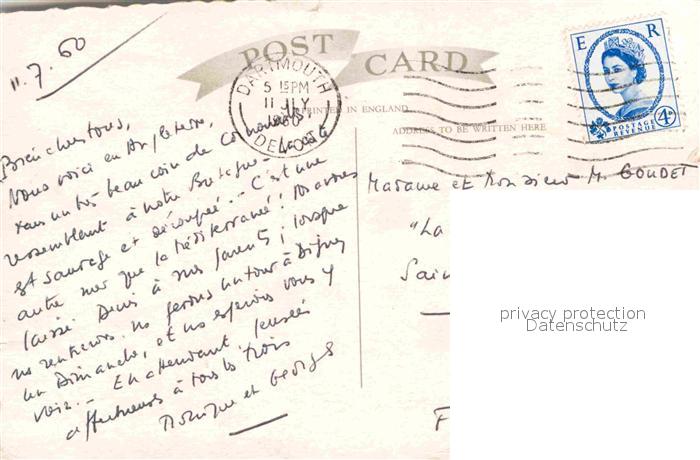 11.7.60
POST CARD
PRINTED IN ENGLAND
ADDRESS TO BE WRITTEN HERE
DARTMOUTH
5 15 PM
11 JLY
DEVON
E R
POSTAGE
REVENUE
4D
Bien chers tous,
Nous voici en Angleterre,
dans un très beau coin de
ressemblant à notre Bretagne - La côte
est sauvage et découpée. - C'est une
autre mer que la Méditerranée! Nous avons
laissé Denis à mes parents; lorsque
ns rentrerons ns ferons un tour à Digne,
un Dimanche, et ns espérons vous y
voir. - En attendant pensées
affectueuses à tous les trois
Monique et Georges
Madame et Monsieur M. GOUDET
"La
Sain
F
privacy protection
Datenschutz